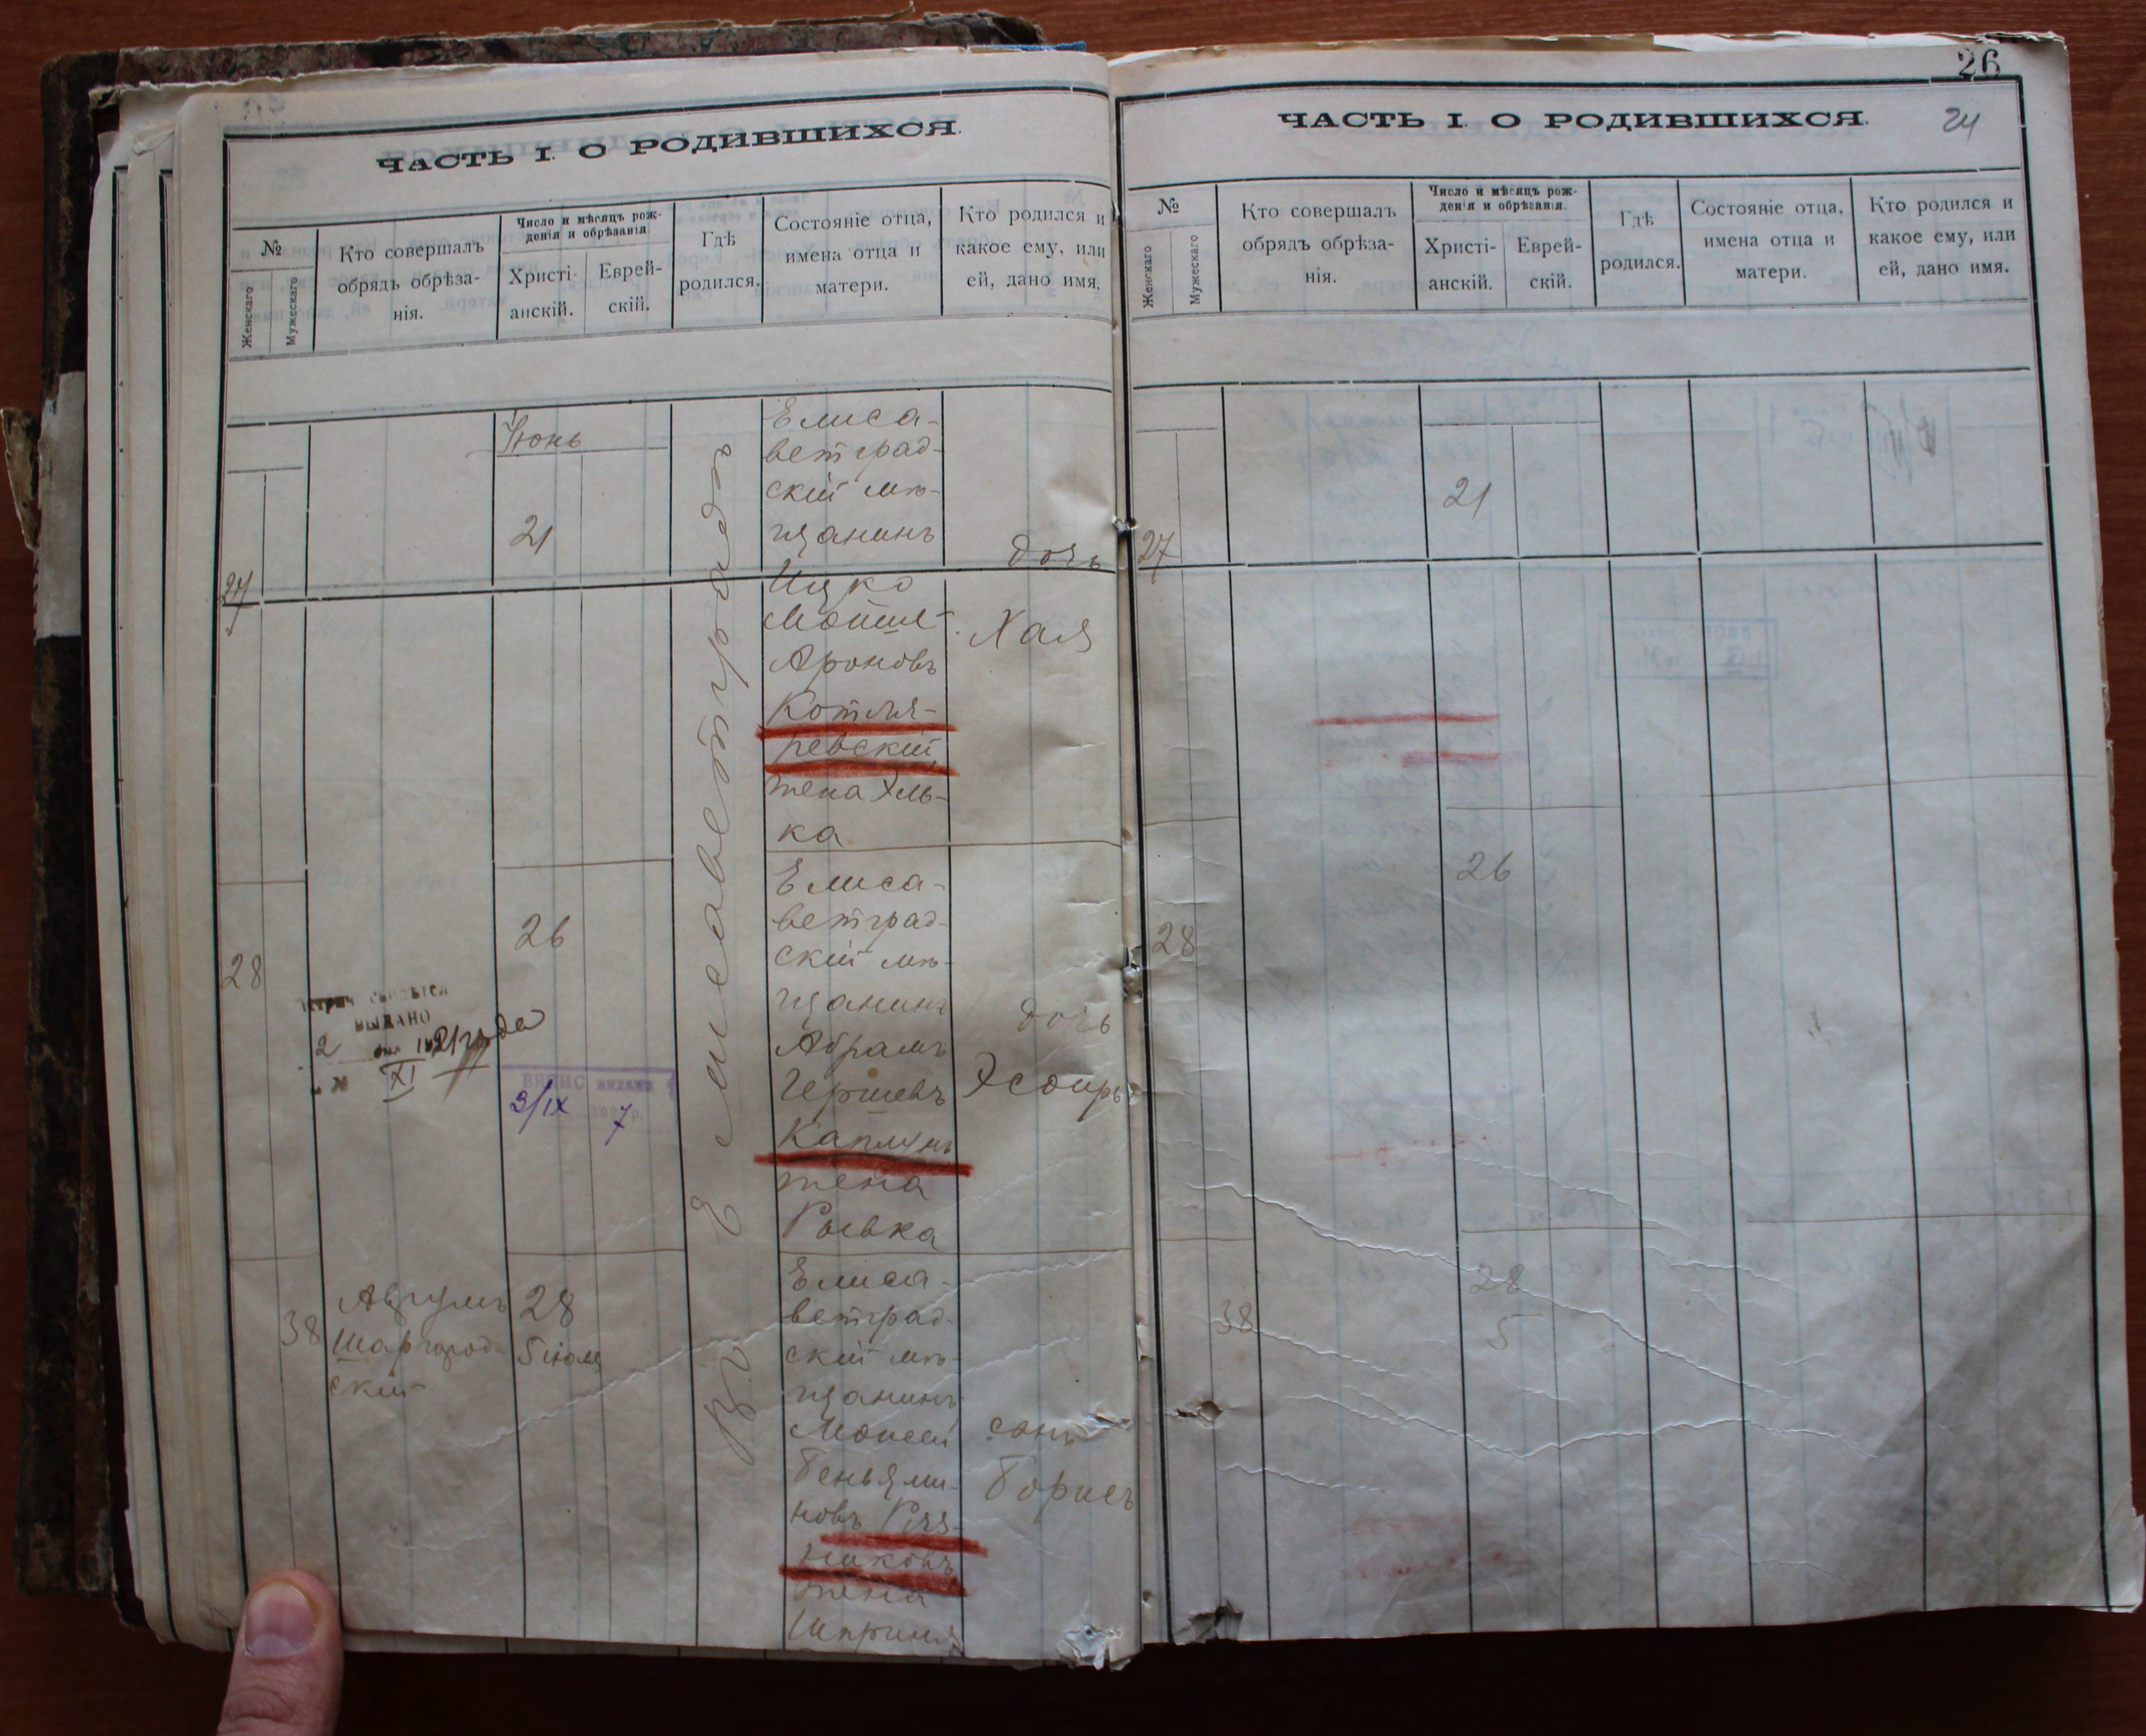 ЧАСТЬ I. О РОДИВШИХСЯ.
№
Женскаго
Мужескаго
Кто совершалъ
обрядъ обрѣза-
нія.
Число и мѣсяцъ рож-
денія и обрѣзанія.
Христі-
анскій.
Еврей-
скій.
Гдѣ
родился.
Состояніе отца,
имена отца и
матери.
Кто родился и
какое ему, или
ей, дано имя.
Въ Елисаветградѣ
27
Іюнь
21
Елиса-
ветград-
скій мѣ-
щанинъ
Ицко
Мошко-
Ароновъ
Котля-
ревскій,
жена Хль-
ка
дочь
Хая
28
26
ВЫДАНО
2
1921 года
№ XI
ВИПИС видана
3/IX 7
Елиса-
ветград-
скій мѣ-
щанинъ
Абрамъ
Гершевъ
Каплунъ
жена
Рывка
дочь
Эсѳирь
38
Авгумъ
Шаргород-
скій
28
5 іюля
Елиса-
ветград-
скій мѣ-
щанинъ
Моисей
Беньями-
новъ
жена
сынъ
Борисъ
26
24
ЧАСТЬ I. О РОДИВШИХСЯ.
№
Женскаго
Мужескаго
Кто совершалъ
обрядъ обрѣза-
нія.
Число и мѣсяцъ рож-
денія и обрѣзанія.
Христі-
анскій.
Еврей-
скій.
Гдѣ
родился.
Состояніе отца,
имена отца и
матери.
Кто родился и
какое ему, или
ей, дано имя.
27
21
28
26
38
28
5